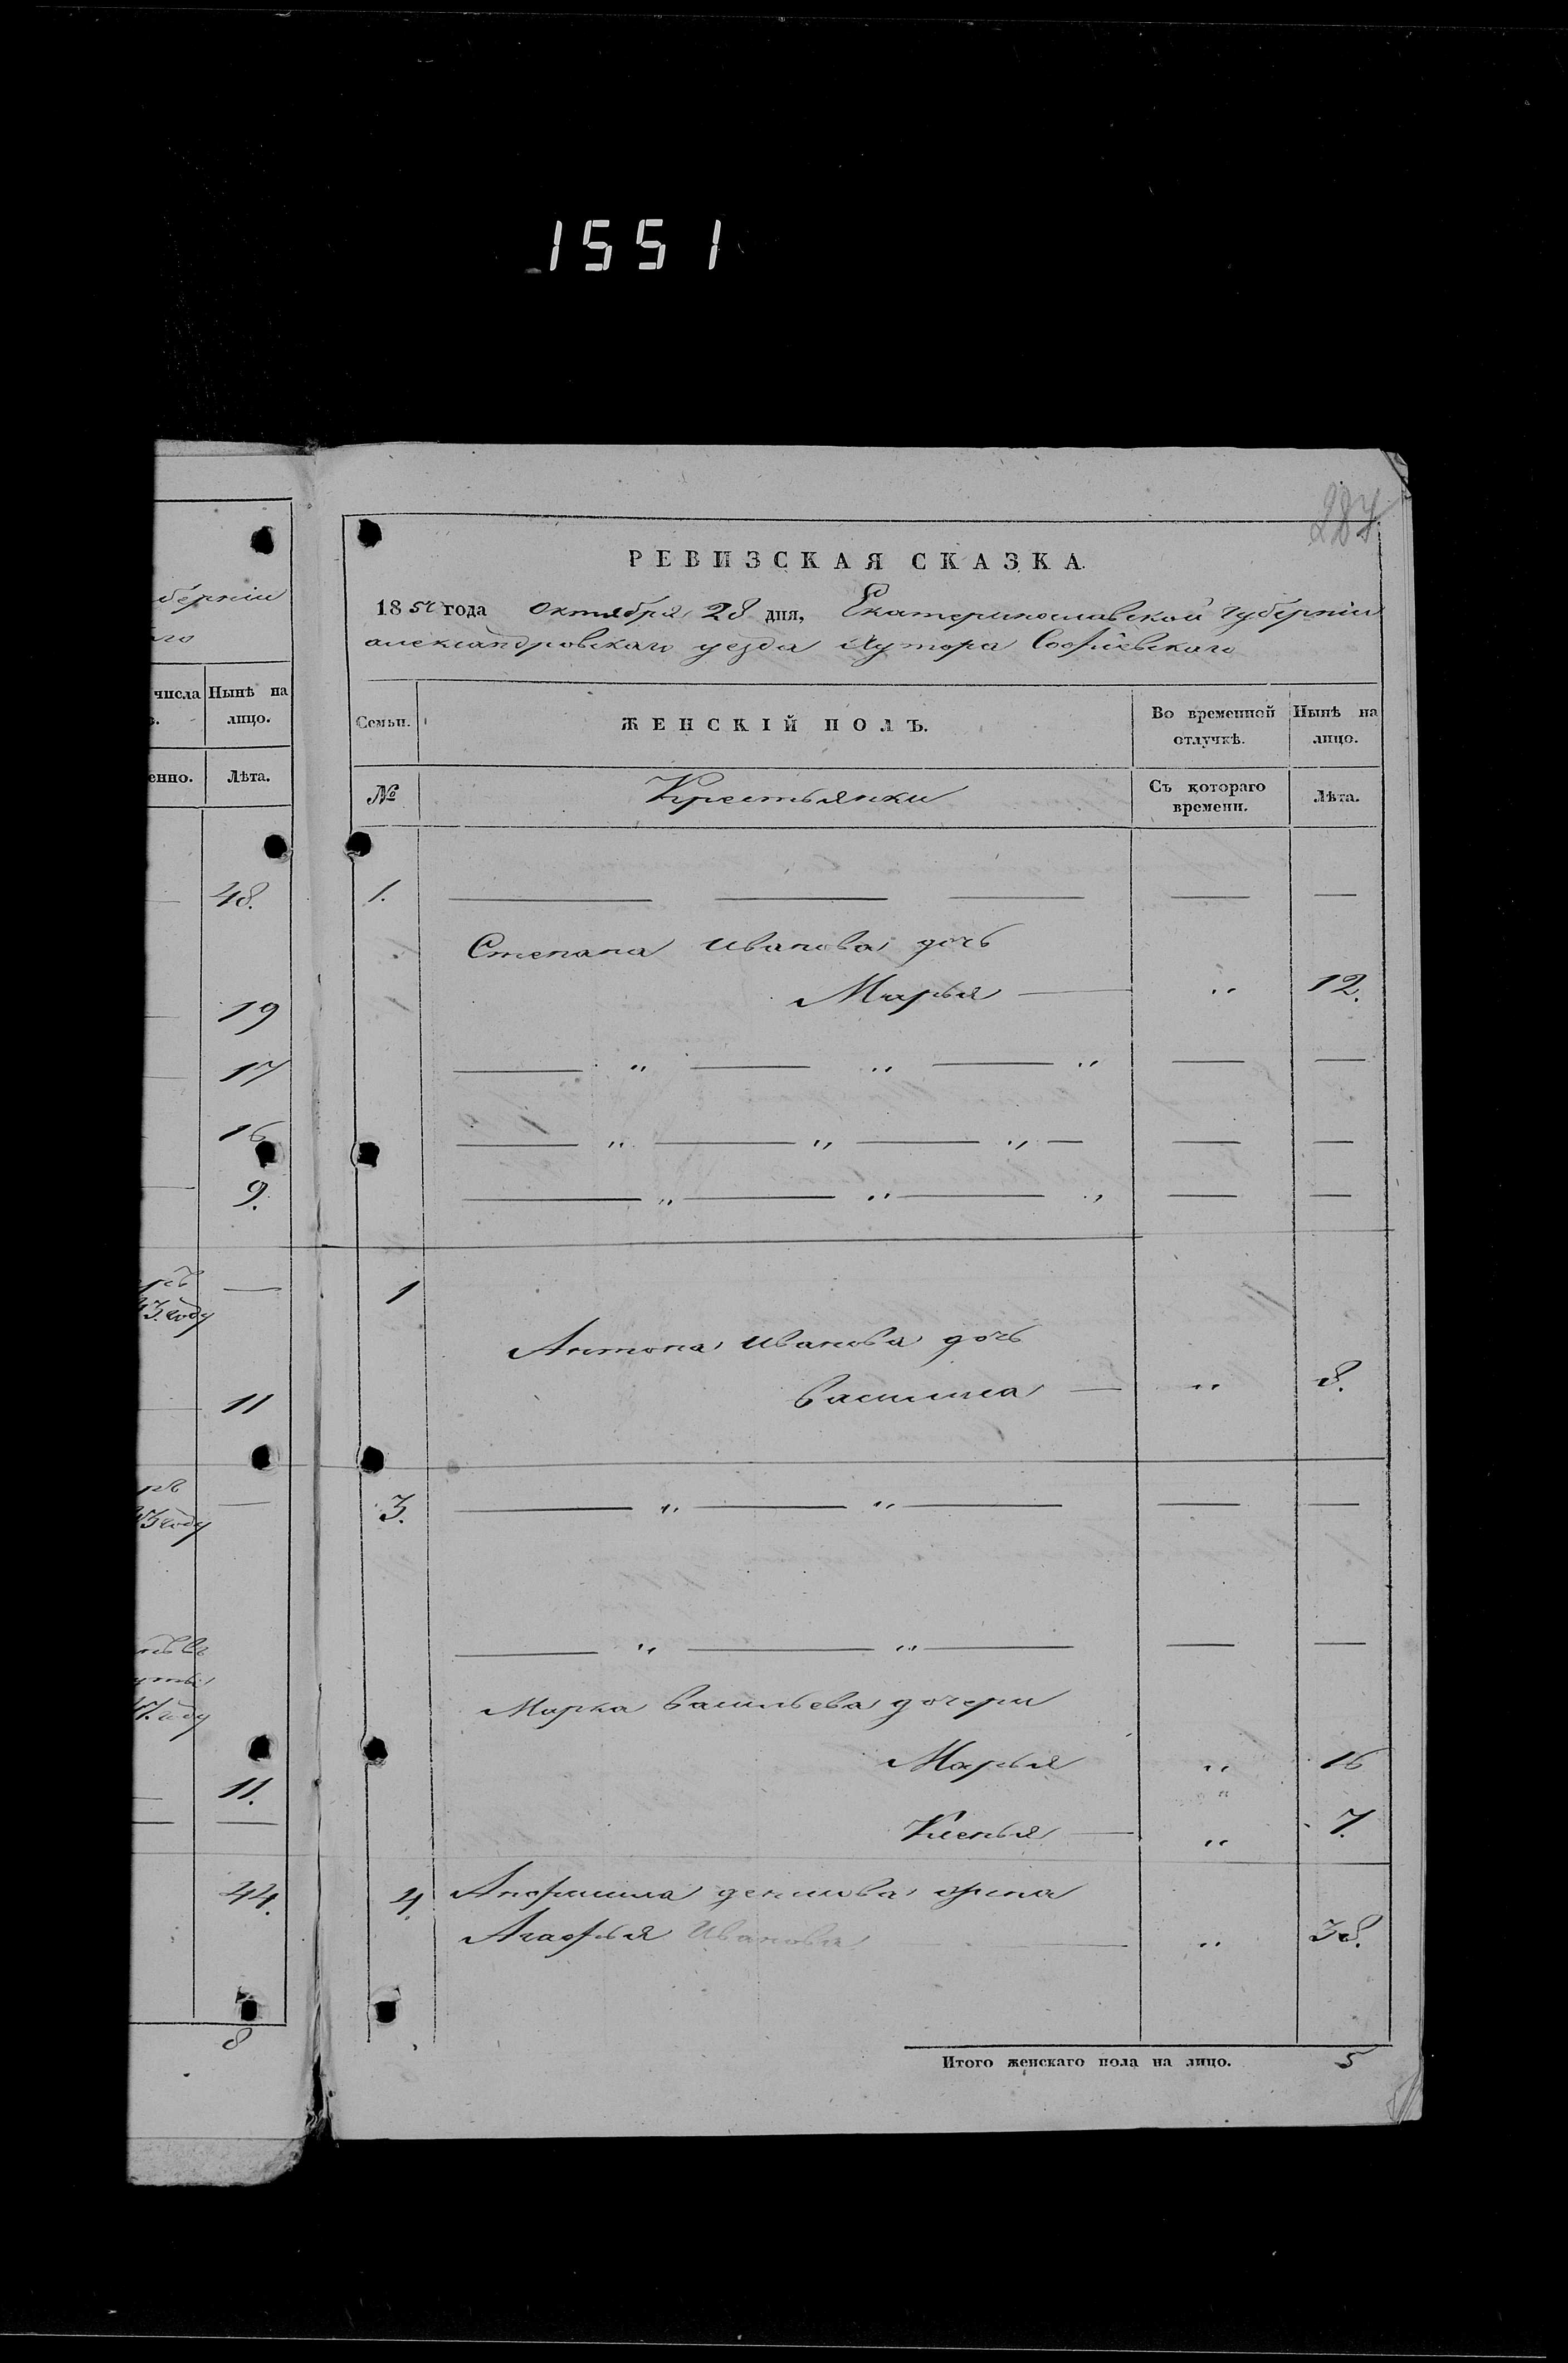 1551
287
бернiи
аго
числа Нынѣ на
лицо.
енно. Лѣта.
48.
19
17
16
9.
43. году
11
43 году
47. году
11.
44.
8
РЕВИЗСКАЯ СКАЗКА.
1850 года Октября 28 дня, Екатеринославской губернiи
александровскаго уезда Хутора Софiевскаго
Семьи. ЖЕНСКIЙ ПОЛЪ. Во временной отлучкѣ. Нынѣ на лицо.
№ Крестьянки Съ котораго времени. Лѣта.
1.
Степана Иванова дочь
Марья — „ 12.
1
Антона Иванова дочь
Василиса — „ 8.
3.
Марка Васильева дочери
Марья „ 16
Ксенья — „ 7.
4. денисова жена
Агафья Иванова — „ 38.
Итого женскаго пола на лицо. 5